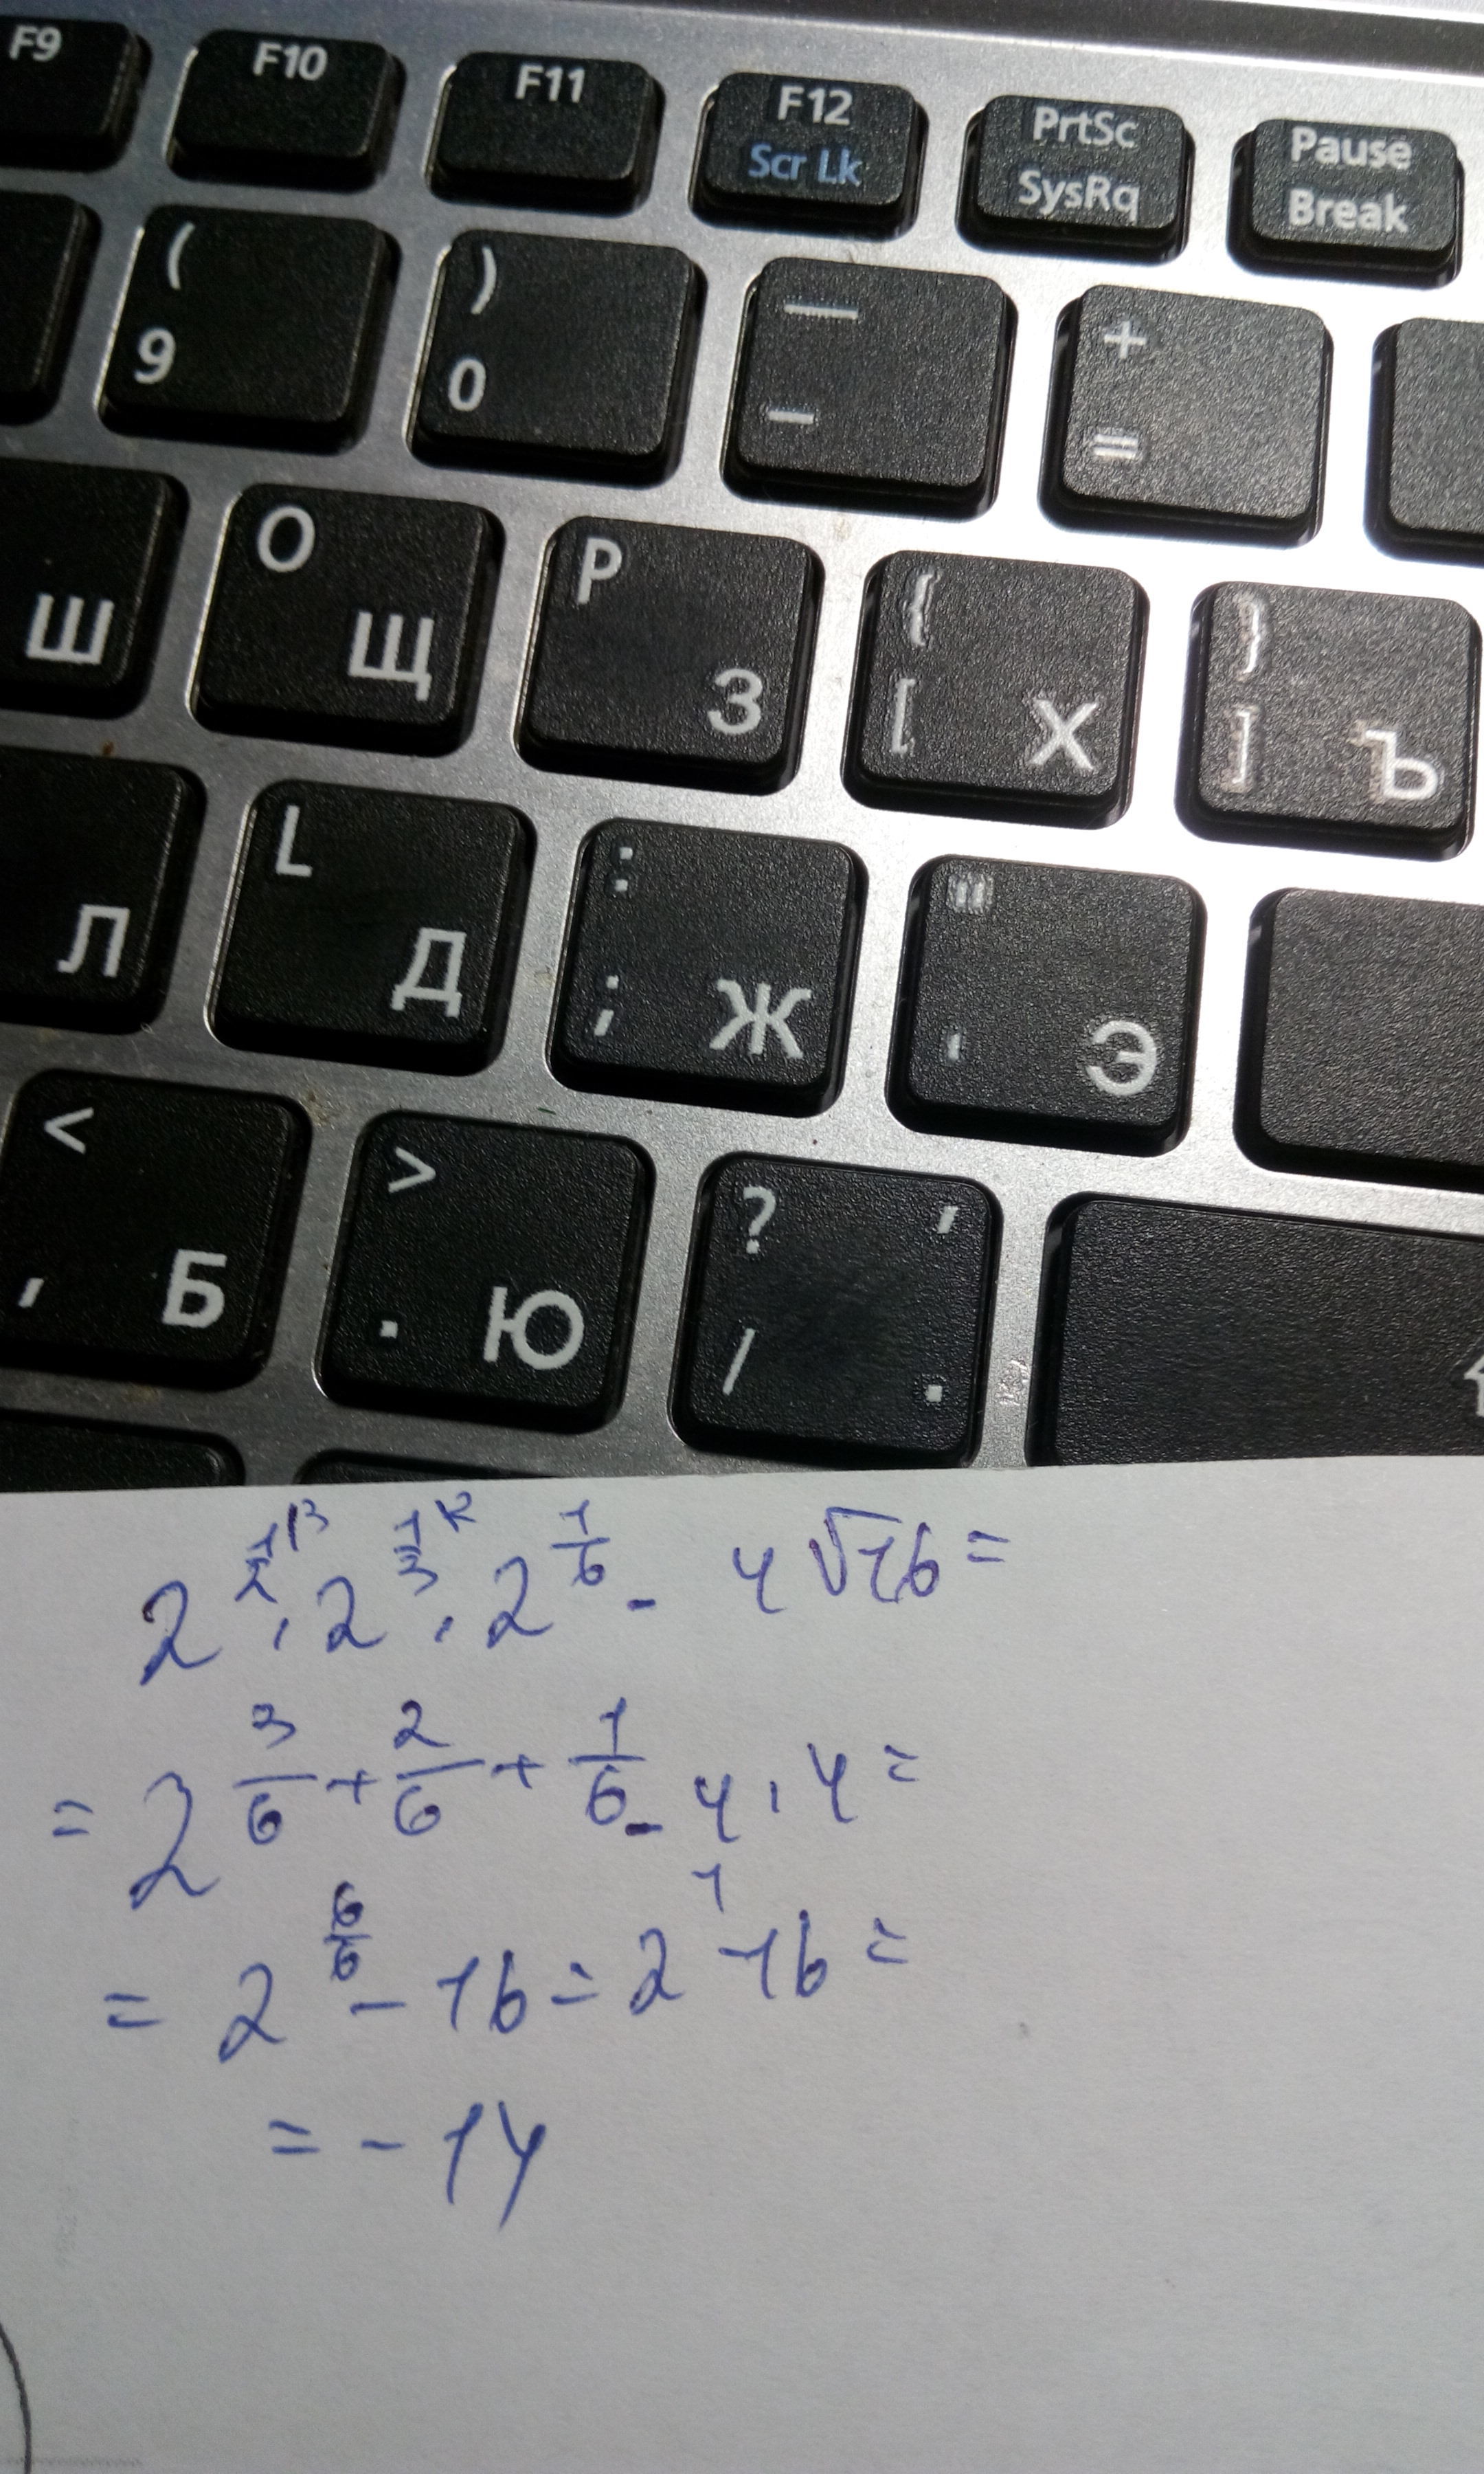 F9 F10 F11 F12 PrtSc Pause
Scr Lk SysRq Break
( ) — +
9 0 - =
O P { }
Ш Щ З [ Х ] Ъ
L : "
Л Д ; Ж ' Э
< > ? ,
, Б . Ю / .
2^{\frac{1}{2}^{|3}} · 2^{\frac{1}{3}^{|2}} · 2^{\frac{1}{6}} - 4√16 =
= 2^{\frac{3}{6} + \frac{2}{6} + \frac{1}{6}} - 4 · 4 =
= 2^{\frac{6}{6}} - 16 = 2^{1} - 16 =
= - 14